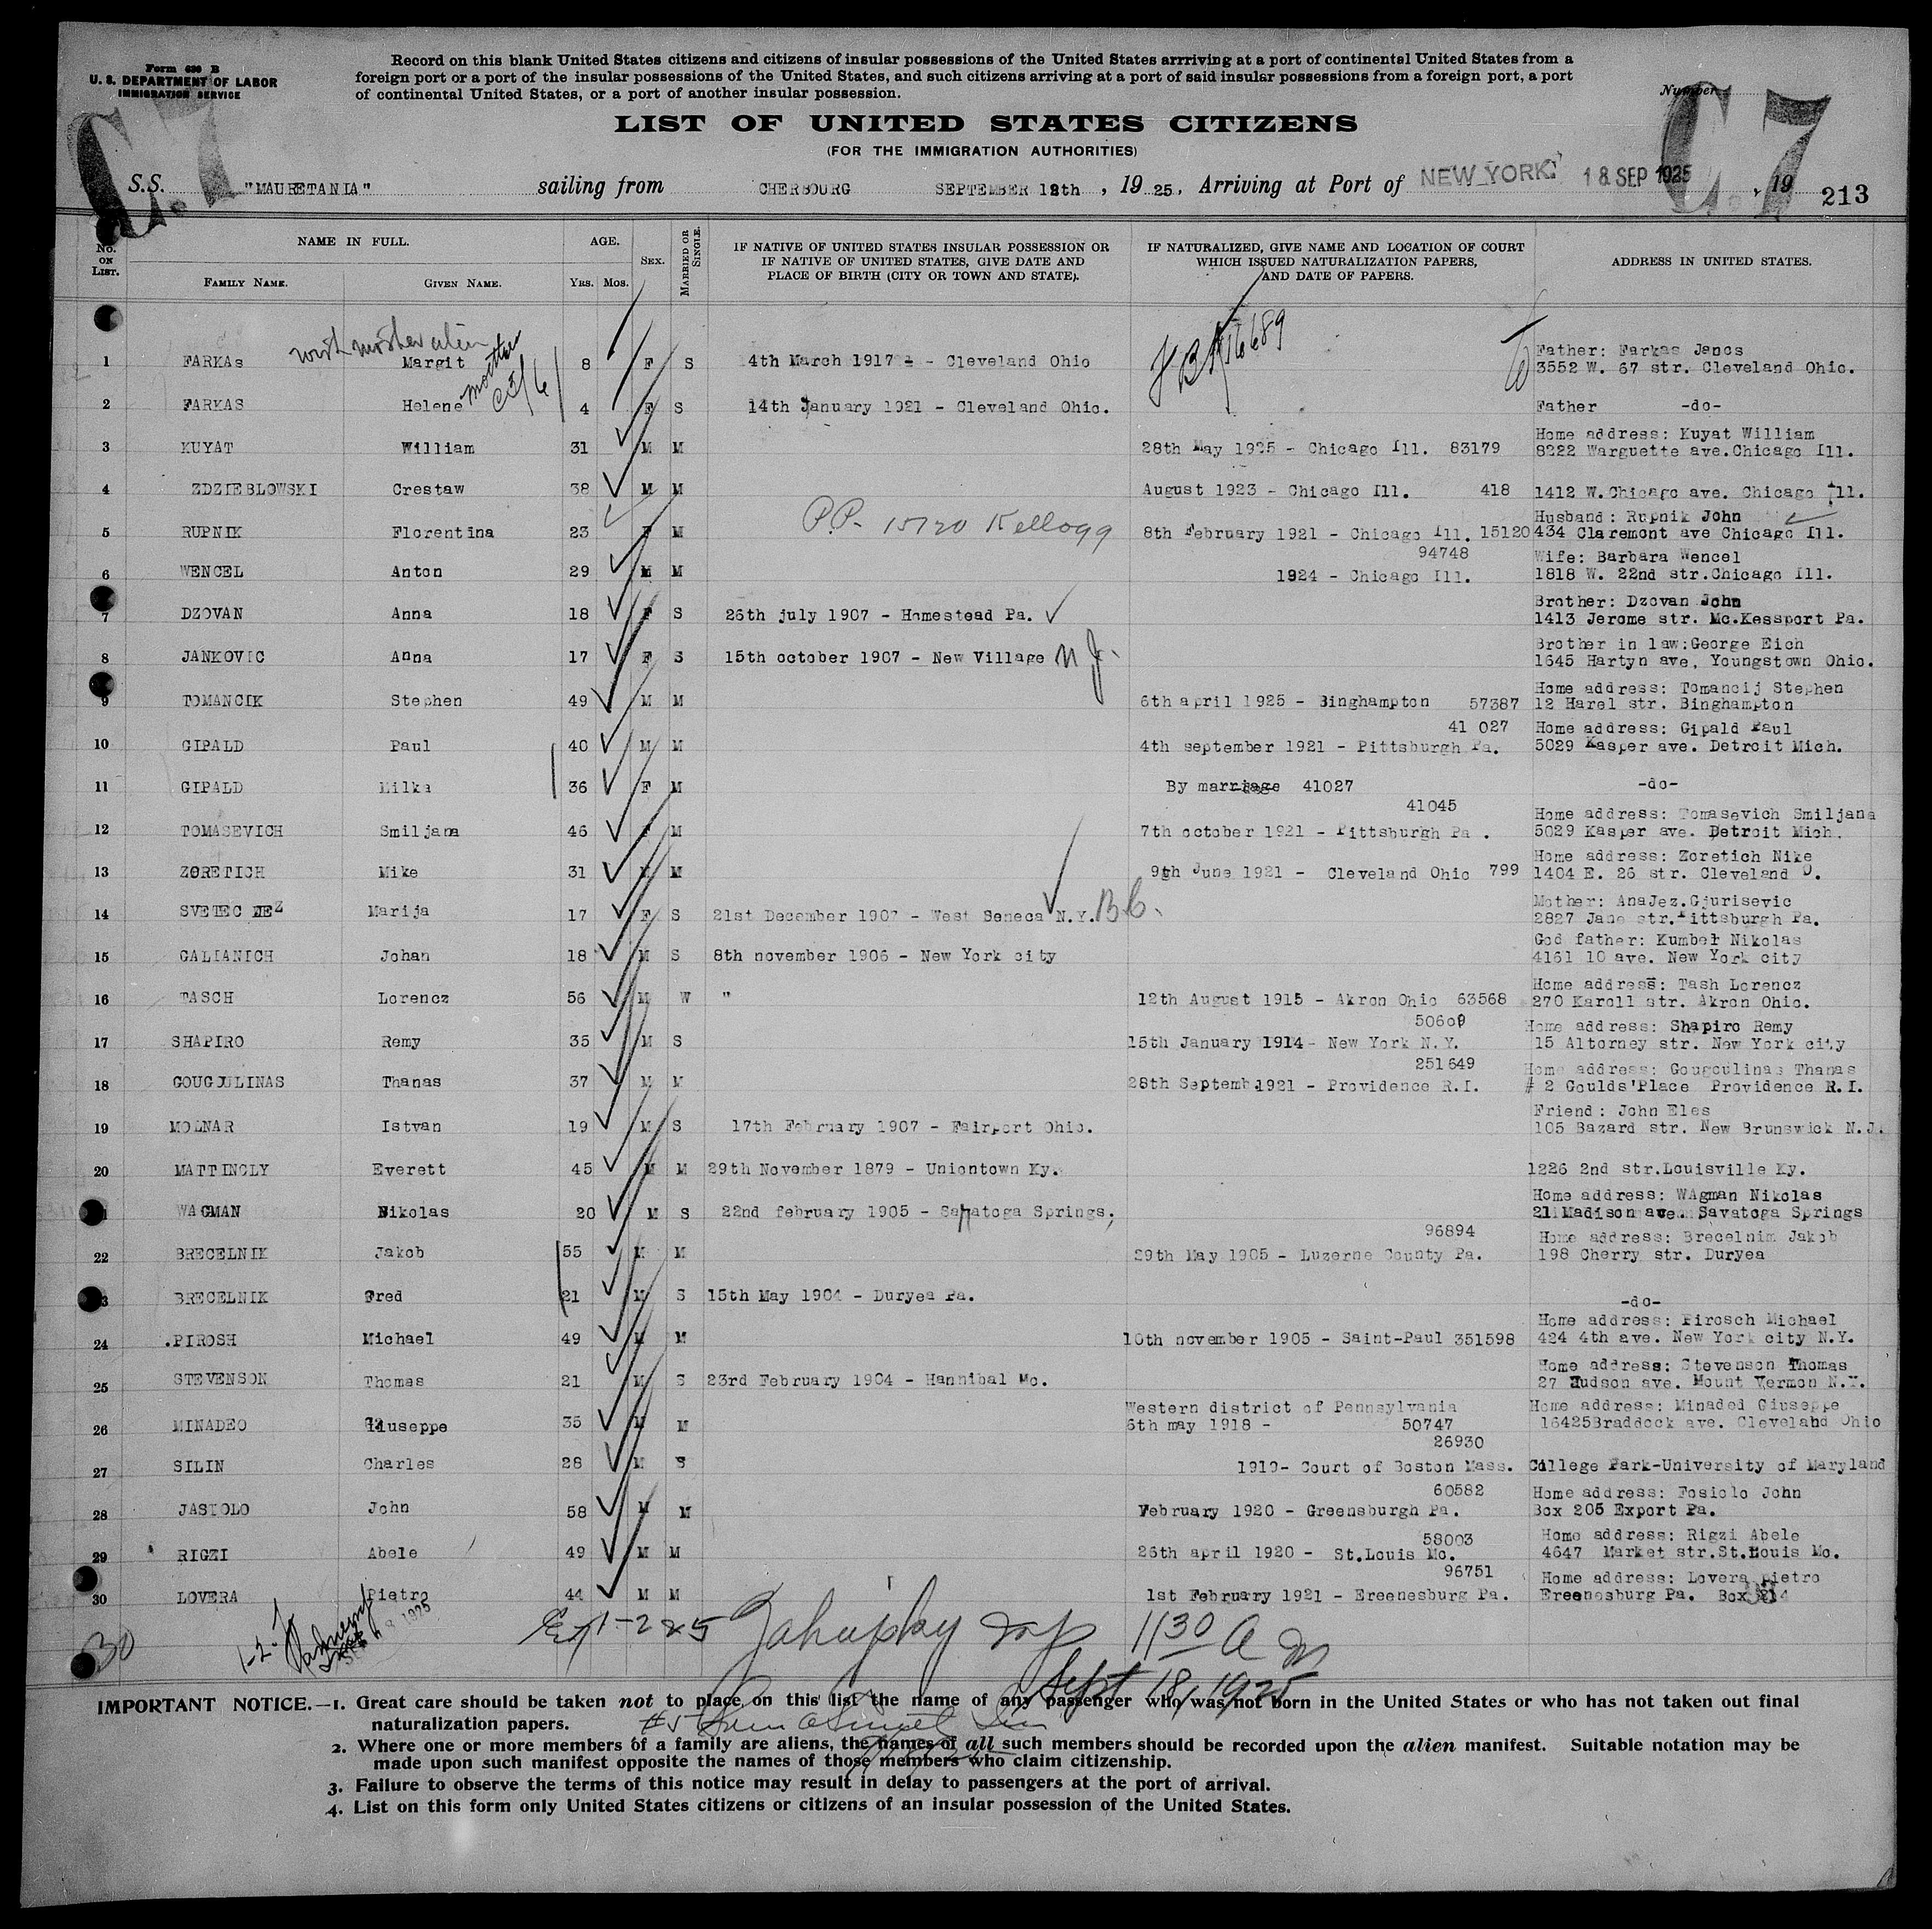 Form 630 B
U. S. DEPARTMENT OF LABOR
IMMIGRATION SERVICE
Record on this blank United States citizens and citizens of insular possessions of the United States arrriving at a port of continental United States from a
foreign port or a port of the insular possessions of the United States, and such citizens arriving at a port of said insular possessions from a foreign port, a port
of continental United States, or a port of another insular possession.
Number
C.7 C.7
LIST OF UNITED STATES CITIZENS
(FOR THE IMMIGRATION AUTHORITIES)
S.S. "MAURETANIA" sailing from CHERBOURG SEPTEMBER 12th , 19 25, Arriving at Port of NEW YORK 18 SEP 1925 , 19 213
No. ON LIST. NAME IN FULL. FAMILY NAME. GIVEN NAME. AGE. YRS. MOS. SEX. MARRIED OR SINGLE. IF NATIVE OF UNITED STATES INSULAR POSSESSION OR IF NATIVE OF UNITED STATES, GIVE DATE AND PLACE OF BIRTH (CITY OR TOWN AND STATE). IF NATURALIZED, GIVE NAME AND LOCATION OF COURT WHICH ISSUED NATURALIZATION PAPERS, AND DATE OF PAPERS. ADDRESS IN UNITED STATES.
with mother alien
mother C3/6
16689
1 FARKAs Margit 8 F S 4th March 1917 - Cleveland Ohio Father: Farkas Janos
3552 W. 67 str. Cleveland Ohio.
2 FARKAS Helene 4 F S 14th January 1921 - Cleveland Ohio. Father -do-
3 KUYAT William 31 M M 28th May 1925 - Chicago Ill. 83179 Home address: Kuyat William
8222 Warguette ave.Chicago Ill.
4 ZDZIEBLOWSKI Crestaw 38 M M August 1923 - Chicago Ill. 418 1412 W.Chicago ave. Chicago Ill.
5 RUPNIK Florentina 23 F M P.P. 15120 Kellogg 8th February 1921 - Chicago Ill. 15120 Husband: Rupnik John
434 Claremont ave Chicago Ill.
6 WENCEL Anton 29 M M 94748
1924 - Chicago Ill. Wife: Barbara Wencel
1818 W. 22nd str.Chicago Ill.
7 DZOVAN Anna 18 F S 26th july 1907 - Homestead Pa. Brother: Dzovan John
1413 Jerome str. Mc.Kessport Pa.
8 JANKOVIC Anna 17 F S 15th october 1907 - New Village N J. Brother in law:George Eich
1645 Hartyn ave, Youngstown Ohio.
9 TOMANCIK Stephen 49 M M 6th april 1925 - Binghampton 57387 Home address: Tomancij Stephen
12 Harel str. Binghampton
10 GIPALD Paul 40 M M 41 027
4th september 1921 - Pittsburgh Pa. Home address: Gipald Paul
5029 Kasper ave. Detroit Mich.
11 GIPALD Milka 36 F M By marriage 41027 -do-
12 TOMASEVICH Smiljana 46 F M 41045
7th october 1921 - Pittsburgh Pa . Home address: Tomasevich Smiljana
5029 Kasper ave. Detroit Mich.
13 ZORETICH Mike 31 M M 9th June 1921 - Cleveland Ohio 799 Home address: Zoretich Nike
1404 E. 26 str. Cleveland O.
14 SVETEC Marija 17 F S 21st December 1907 - West Seneca N.Y. B.C. Mother: AnaJez.Gjurisevic
2827 Jane str.Pittsburgh Pa.
15 GALIANICH Johan 18 M S 8th november 1906 - New York city God father: Kumber Nikolas
4161 10 ave. New York city
16 TASCH Lorencz 56 M W " 12th August 1915 - Akron Ohio 63568 Home address: Tash Lorencz
270 Karoll str. Akron Ohio.
17 SHAPIRO Remy 35 M S 50609
15th January 1914- New York N.Y. Home address: Shapiro Remy
15 Altorney str. New York city
18 GOUGOULINAS Thanas 37 M M 251649
28th Septemb.1921 - Providence R.I. Home address: Gougoulinas Thanas
# 2 Goulds'Place Providence R.I.
19 MOLNAR Istvan 19 M S 17th February 1907 - Fairport Ohio. Friend: John Eles
105 Bazard str. New Brunswick N.J.
20 MATTINGLY Everett 45 M M 29th November 1879 - Uniontown Ky. 1226 2nd str.Louisville Ky.
WAGMAN Nikolas 20 M S 22nd february 1905 - Saratoga Springs. Home address: WAgman Nikolas
21 Madison ave. Savatoga Springs
22 BRECELNIK Jakob 55 M M 96894
29th May 1905 - Luzerne County Pa. Home address: Brecelnim Jakob
198 Cherry str. Duryea
3 BRECELNIK Fred 21 M S 15th May 1904 - Duryea Pa. -do-
24 .PIROSH Michael 49 M M 10th november 1905 - Saint-Paul 351598 Home address: Pirosch Michael
424 4th ave. New York city N.Y.
25 STEVENSON Thomas 21 M S 23rd February 1904 - Hannibal Mo. Home address: Stevenson Thomas
27 Hudson ave. Mount Vermon N.Y.
26 MINADEO Giuseppe 35 M M Western district of Pennsylvania
6th may 1918 - 50747 Home address: Minaded Giuseppe
16425Braddock ave. Cleveland Ohio
27 SILIN Charles 28 M S 26930
1919- Court of Boston Mass. College Park-University of Maryland
28 JASIOLO John 58 M M 60582
February 1920 - Greensburgh Pa. Home address: Fosiolo John
Box 205 Export Pa.
29 RIGZI Abele 49 M M 58003
26th april 1920 - St.Louis Mo. Home address: Rigzi Abele
4647 Market str.St.Louis Mo.
30 LOVERA Pietro 44 M M 96751
1st February 1921 - Ereenesburg Pa. Home address: Lovera pietro
Ereenesburg Pa. Box
30 1-2-
1130 A m
Sept 18, 1925
IMPORTANT NOTICE.—1. Great care should be taken not to place on this list the name of any passenger who was not born in the United States or who has not taken out final
naturalization papers.
#5
2. Where one or more members of a family are aliens, the names of all such members should be recorded upon the alien manifest. Suitable notation may be
made upon such manifest opposite the names of those members who claim citizenship.
3. Failure to observe the terms of this notice may result in delay to passengers at the port of arrival.
4. List on this form only United States citizens or citizens of an insular possession of the United States.